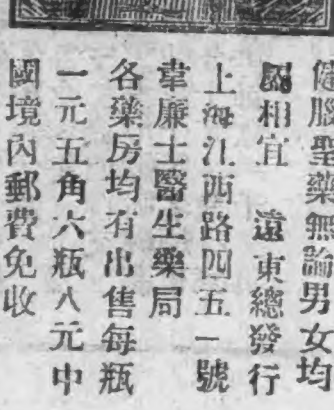 健腦聖藥無論男女均
屬相宜　遠東總發行
上海江西路四五一號
韋廉士醫生藥局
各藥房均有出售每瓶
一元五角六瓶八元中
國境內郵費免收